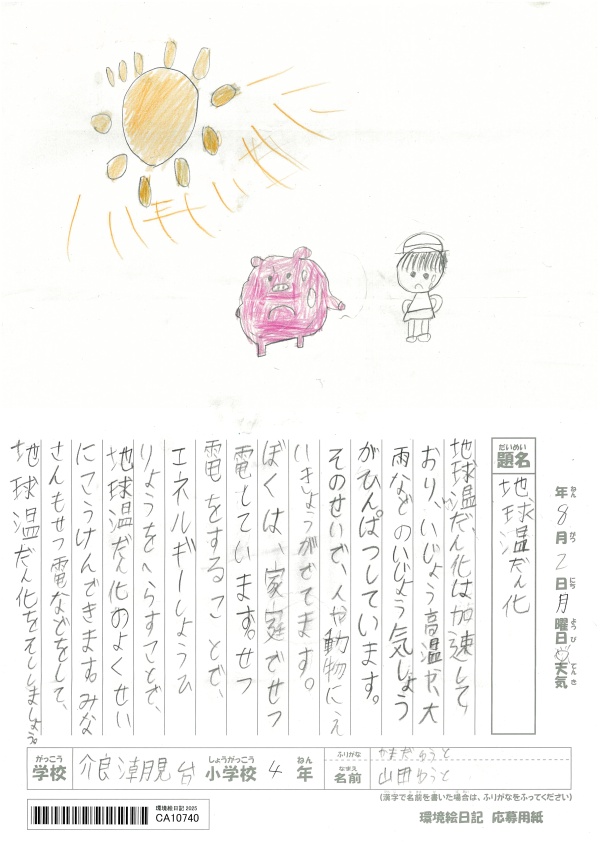 年8月2日月曜日天気
ねん がつ にち ようび てんき
だいめい
題名
地球温だん化
地球温だん化は加速して
おり、いじょう高温や、大
雨などのいじょう気しょう
がひんぱつしています。
そのせいで、人や動物に、え
いきょうがでてます。
ぼくは、家庭でせつ
電しています。せつ
電をすることで、
エネルギーしようひ
りょうをへらすことで、
地球温だん化のよくせい
にこうけんできます。みな
さんもせつ電などをして、
地球温だん化をそししましょう。
がっこう しょうがっこう ねん
学校 介良潮見台 小学校 4 年
ふりがな やまだゆうと
なまえ
名前 山田ゆうと
(漢字で名前を書いた場合は、ふりがなをふってください)
環境絵日記 2025
CA10740
環境絵日記 応募用紙